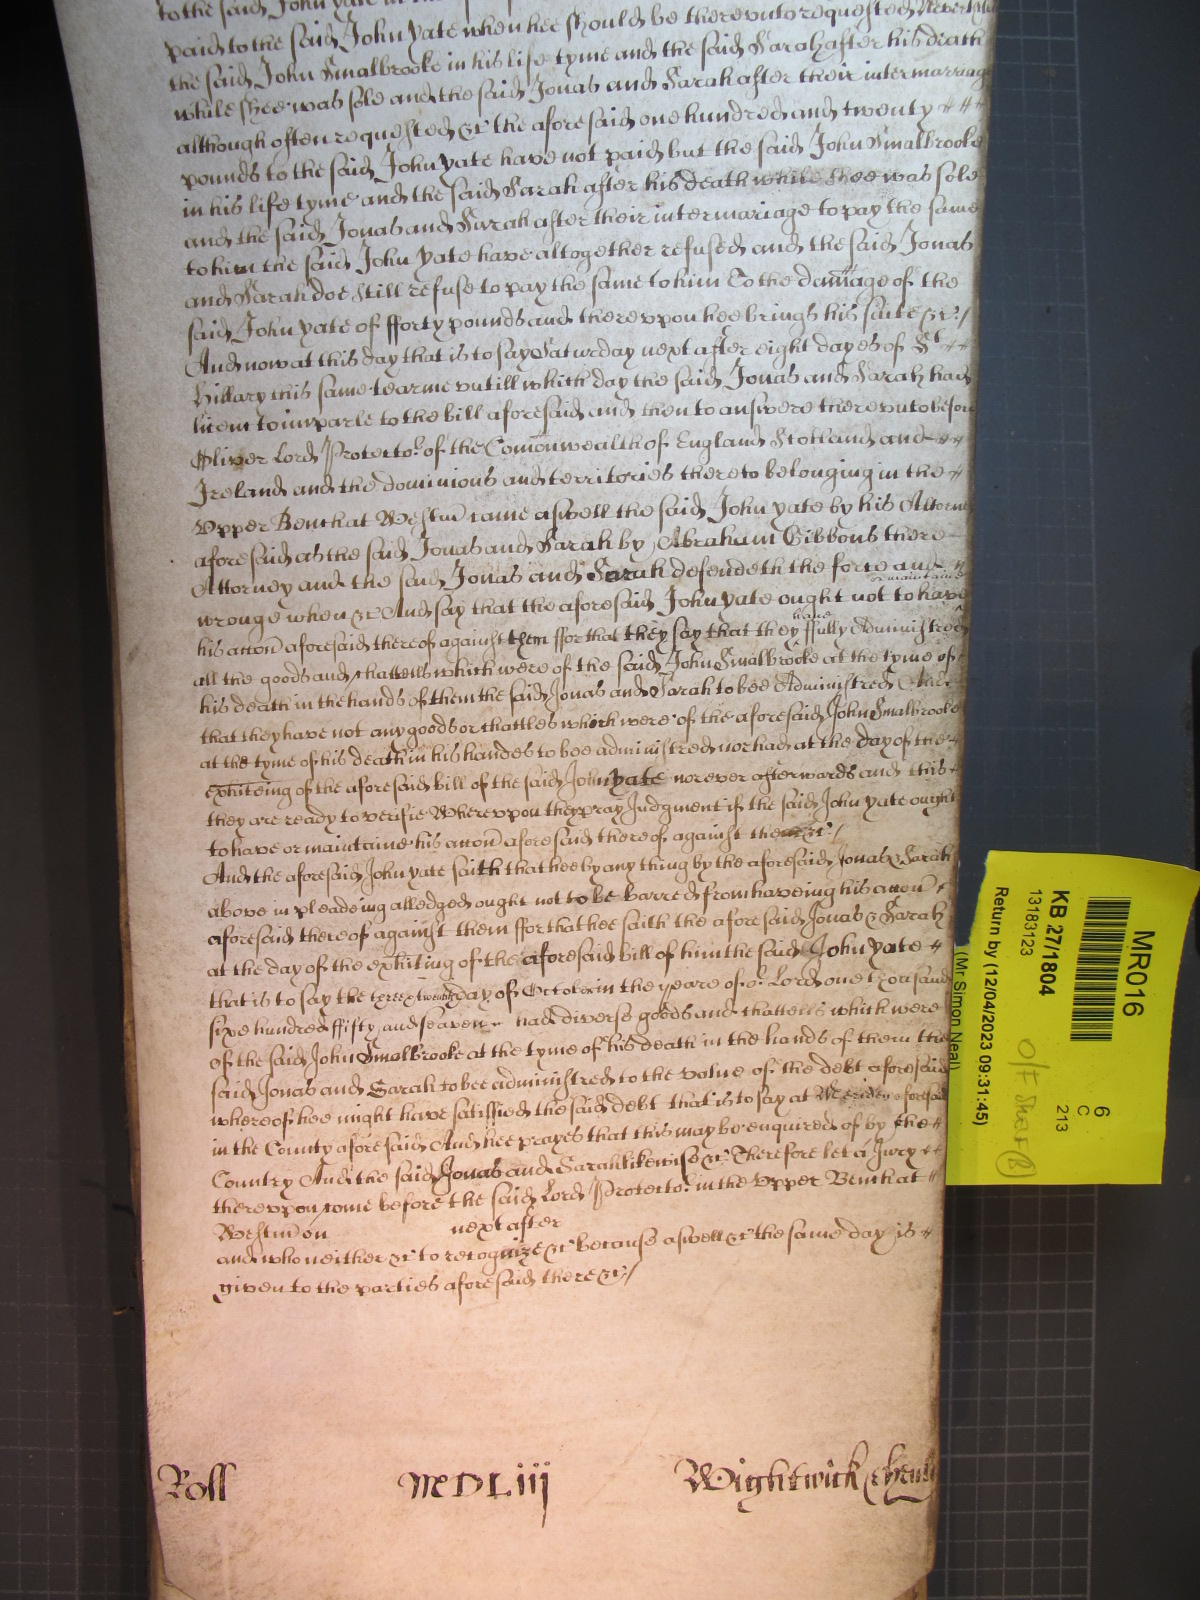 to the said John Yate in
paid to the said John Yate when hee should be therevnto requested Neverthelesse
the said John Smalbrooke in his life tyme and the said Sarah after his death
while shee was sole and the said Jonas and Sarah after their intermarriage
although often requested &c the aforesaid one hundred and twenty
pounds to the said John Yate have not paid but the said John Smalbrooke
in his life tyme and the said Sarah after his death while shee was sole
and the said Jonas and Sarah after their intermariage to pay the same
to him the said John Yate have altogether refused and the said Jonas
and Sarah doe still refuse to pay the same to him To the damage of the
said John Yate of fforty pounds and therevpon hee brings his suite &c /
And now at this day that is to say Saturday next after eight dayes of St
Hillary this same tearme vntill which day the said Jonas and Sarah had
licent to imparle to the bill aforesaid and then to answere therevnto before
Oliver Lord Protector of the Comonwealth of England Scotland and
Ireland and the dominions and territories thereto belonging in the
Vpper Bench at Westm came aswell the said John Yate by his Attorney
aforesaid as the said Jonas and Sarah by Abraham Gibbons there
Attorney and the said Jonas and Sarah defendeth the force and
wronge when &c And say that the aforesaid John Yate ought not to have
his accon aforesaid thereof against them ffor that they say that they have ffully Administred
all the goods and chattells which were of the said John Smalbrooke at the tyme of
his death in the hands of them the said Jonas and Sarah to bee Administred And
that they have not any goods or chattles which were of the aforesaid John Smalbrooke
at the tyme of his death in his handes to bee administred nor had at the day of the
exhiteing of the aforesaid bill of the said John Yate nor ever afterwards and this
they are ready to verifie Wherevpon they pray Judgment if the said John Yate ought
to have or maintaine his accon aforesaid thereof against them &c /
And the aforesaid John Yate saith that hee by any thing by the aforesaid Jonas & Sarah
above in pleadeing alledged ought not to be barred from haveing his accon
aforesaid thereof against them ffor that hee saith the aforesaid Jonas & Sarah
at the day of the exhiting of the aforesaid bill of him the said John Yate
that is to say the three & twentith day of October in the yeare of or Lord one thousand
sixe hundred ffifty and seaven had diverse goods and chattells which were
of the said John Smalbrooke at the tyme of his death in the hands of them the
said Jonas and Sarah to bee administred to the value of the debt aforesaid
whereof hee might have satisfied the said debt that is to say at Meriden aforesaid
in the County aforesaid And hee prayes that this may be enquired of by the
Country And the said Jonas and Sarah likewise &c Therefore let a Jury
therevpon come before the said Lord Protector in the Vpper Bench at
Westm on next after
and who neither &c to recognize &c because aswell &c the same day is
given to the parties aforesaid there &c /
Roll MDLiij Wightwick
MR016
KB 27/1804
13183123
Return by (12/04/2023 09:31:45)
(Mr Simon Neal)
6
C
213